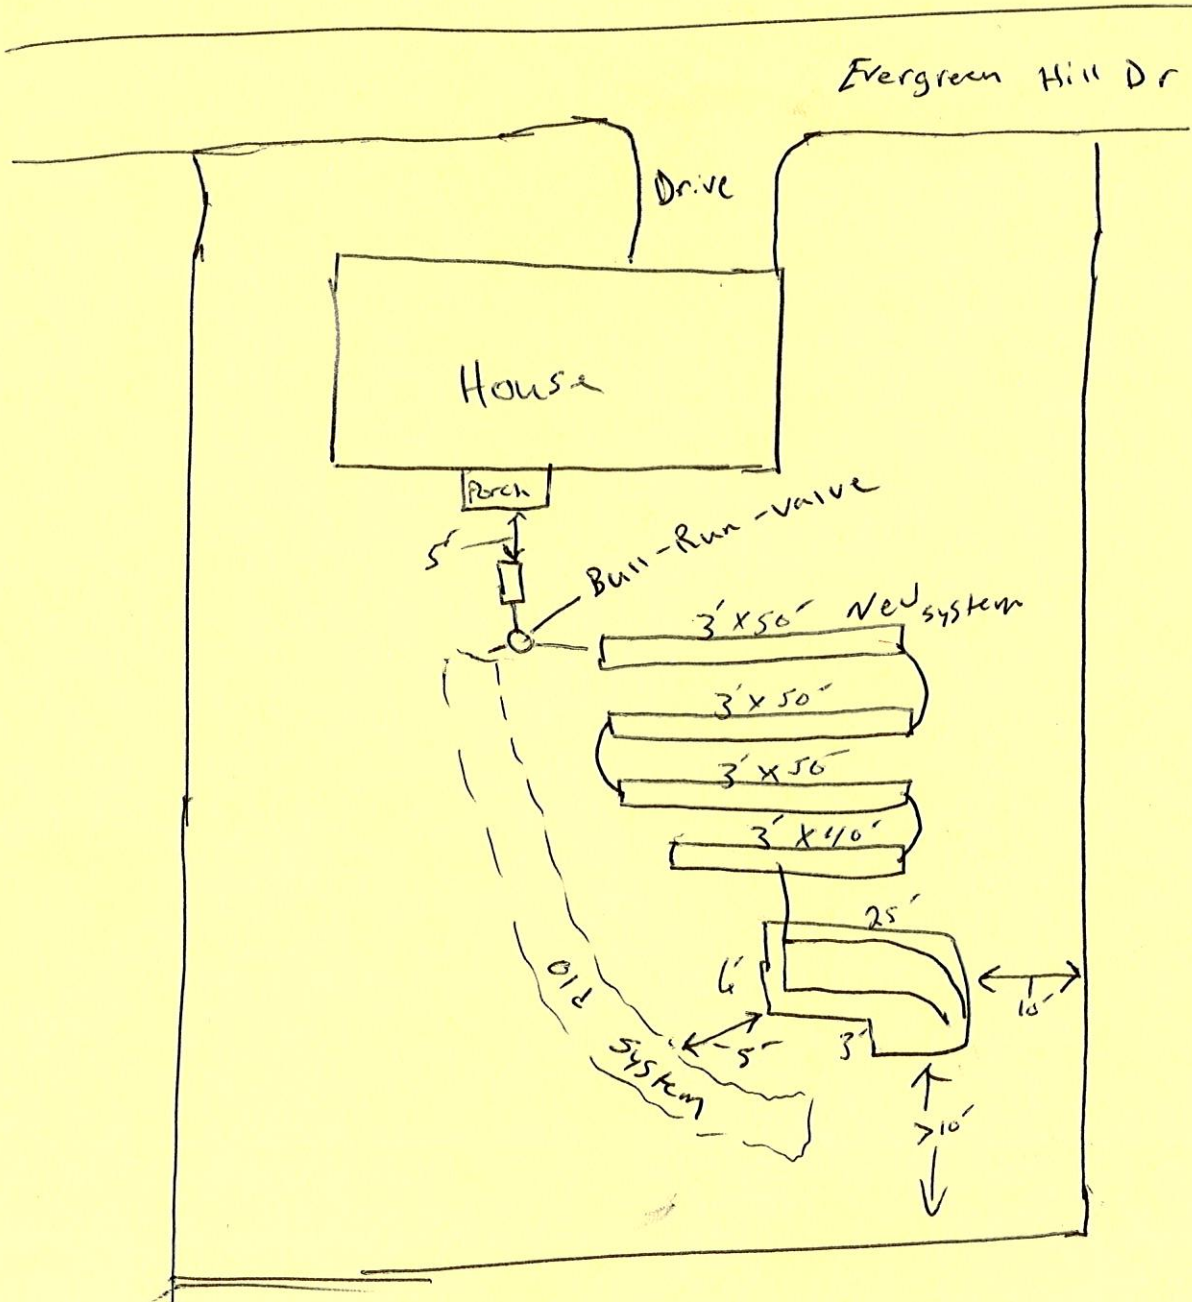 Evergreen Hill Dr
Drive
House
Porch
5'
Bull-Run-Valve
New system
3' x 50'
3' x 50'
3' x 50'
3' x 40'
25'
6'
3'
10'
5'
Old
System
>10'